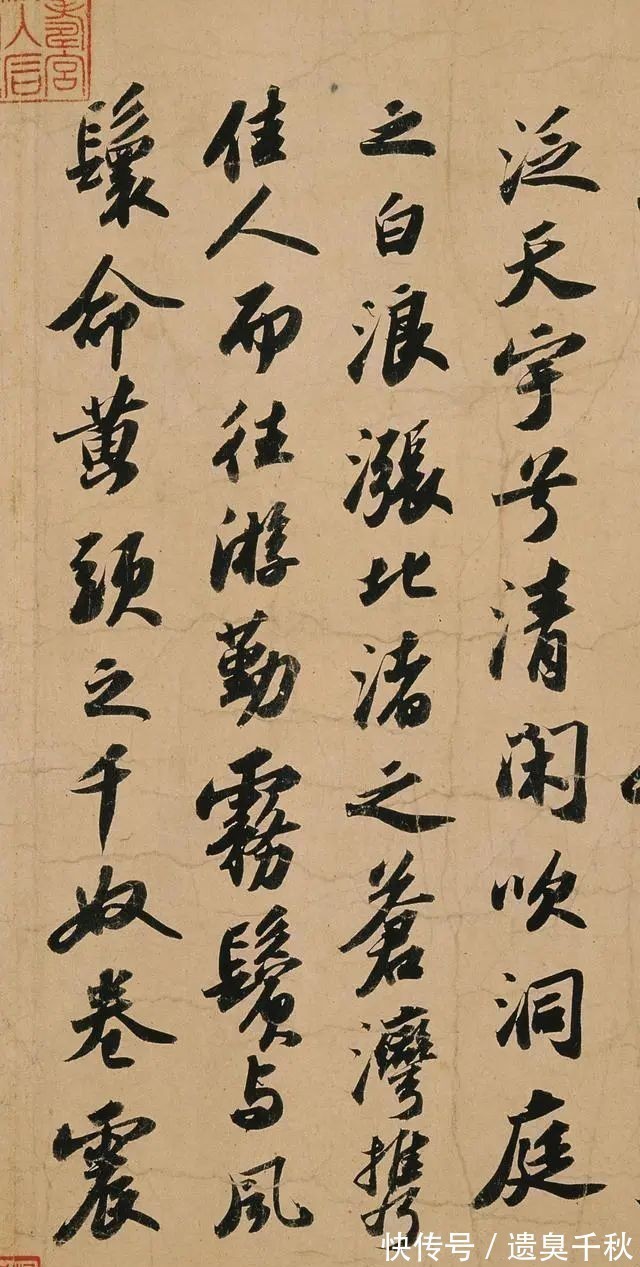 泛天宇兮清閑吹洞庭
之白浪漲北渚之蒼灣攜
佳人而往游勤霧鬢与風
鬟命黄頭之千奴卷震
快传号 / 遗臭千秋